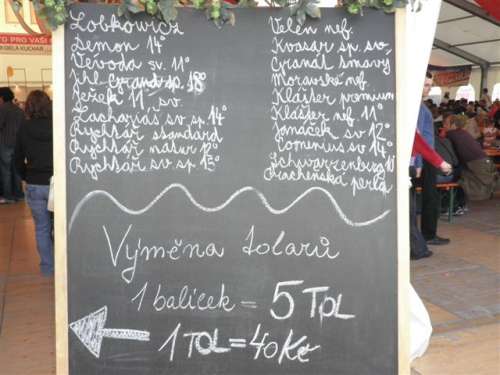 TO PRO VAŠI
DĚLÁ KUCHAŘ
Lobkowicz
Démon 14°
Vévoda sv. 11°
Jihl. Grand sp. 18°
Ježek 11° sv.
Zachariáš sv. sp. 14°
Rychtář standard
Rychtář natur 12°
Rychtář sv. sp. 15°
Velen nef.
Kvasar sp. sv.
Granát tmavý
Moravské nef.
Klášter premium
Klášter nef. 11°
Janáček sv. 12°
Comenius sv. 14°
Schwarzenberg 10°
Plachetnská perla
Výměna tolarů
1 balíček = 5 TOL
1 TOL = 40 Kč